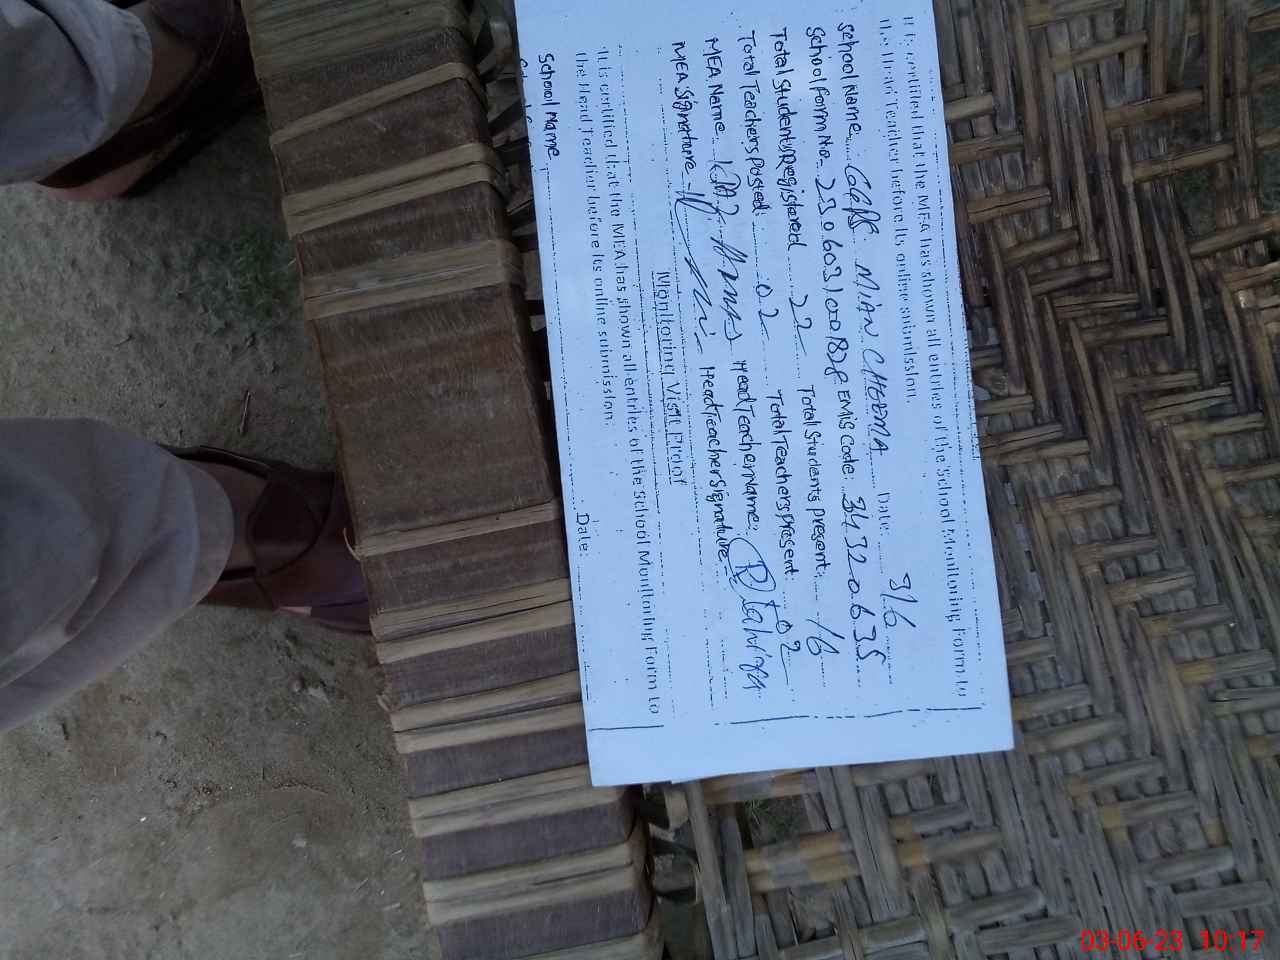 It is certified that the MEA has shown all entries of the School Monitoring Form to
the Head Teacher before its online submission.
School Name..... GGPS MIAN CHEEMA ..... Date: ..... 3/6
School Form No- 230603100 EMIS code: 34320635
Total Students Registered ..... 22 ..... Total Students present: ..... 16
Total Teachers Posted: ..... 02 ..... Total Teachers present: ..... 02
MEA Name: Head Teacher Name:
MEA Signature - Head Teacher Signature -
Monitoring Visit Proof
It is certified that the MEA has shown all entries of the School Monitoring Form to
the Head Teacher before its online submission.
School Name ..... Date:
03-06-23 10:17